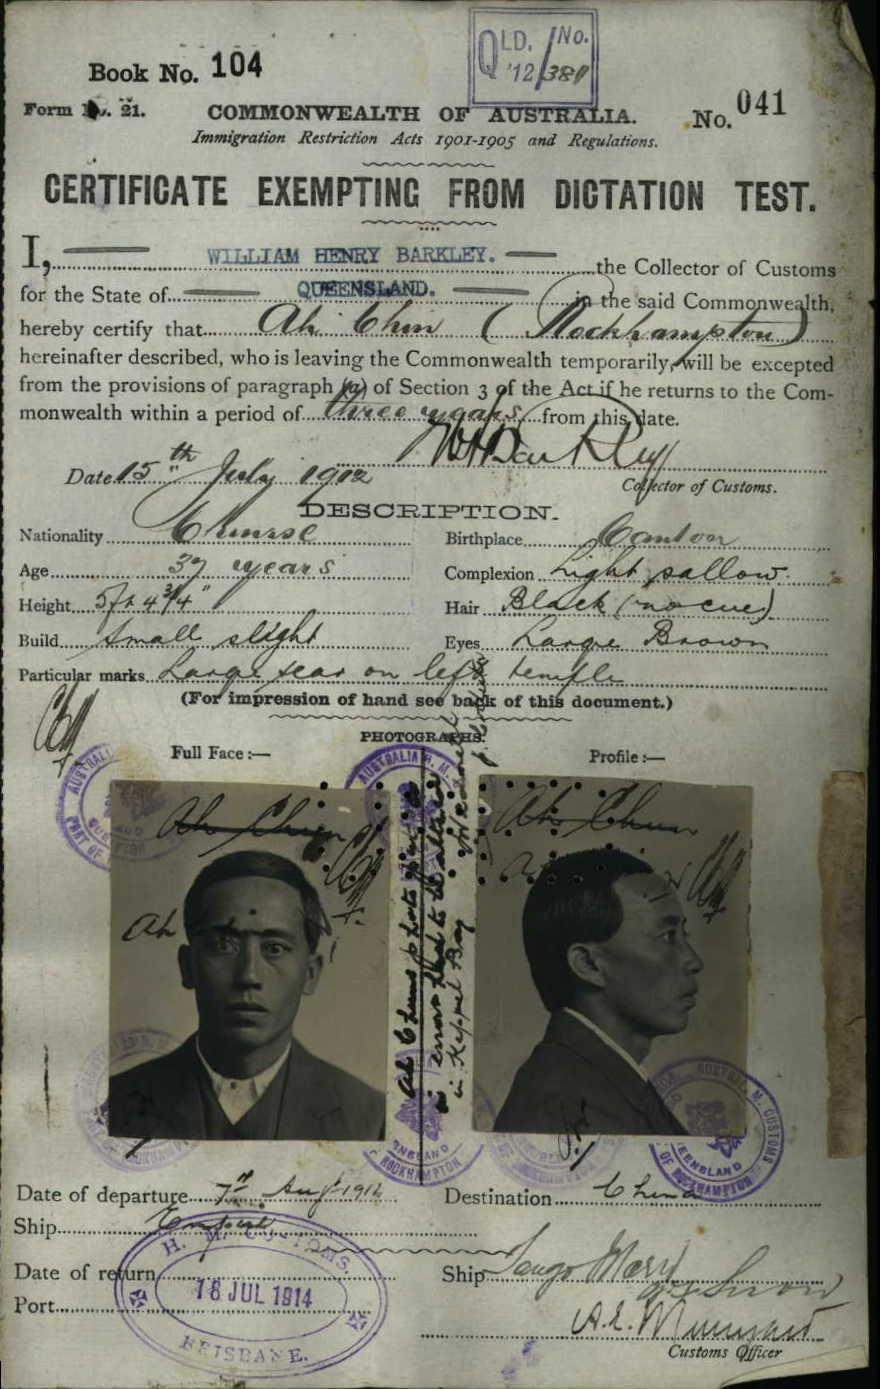 QLD. No.
'12/381
Book No. 104
Form 21.
COMMONWEALTH OF AUSTRALIA.
No. 041
Immigration Restriction Acts 1901-1905 and Regulations.
CERTIFICATE EXEMPTING FROM DICTATION TEST.
I, WILLIAM HENRY BARKLEY. the Collector of Customs
for the State of QUEENSLAND. in the said Commonwealth,
hereby certify that Ah Chin (Rockhampton)
hereinafter described, who is leaving the Commonwealth temporarily, will be excepted
from the provisions of paragraph (a) of Section 3 of the Act if he returns to the Com-
monwealth within a period of three years from this date.
W H Barkley
Date 15th July 1912
Collector of Customs.
DESCRIPTION.
Nationality Chinese
Birthplace Canton
Age 37 years
Complexion Light sallow.
Height 5ft 4 3/4"
Hair Black (no cue)
Build Small slight
Eyes Large Brown
Particular marks Large scar on left temple
(For impression of hand see back of this document.)
PHOTOGRAPHS.
Full Face:—
Profile:—
Ah
in Keppel Bay
Date of departure 7th Aug 1912
Destination China
Ship Empire
Date of return
Ship
Port
H. M. CUSTOMS.
18 JUL 1914
BRISBANE.
Customs Officer